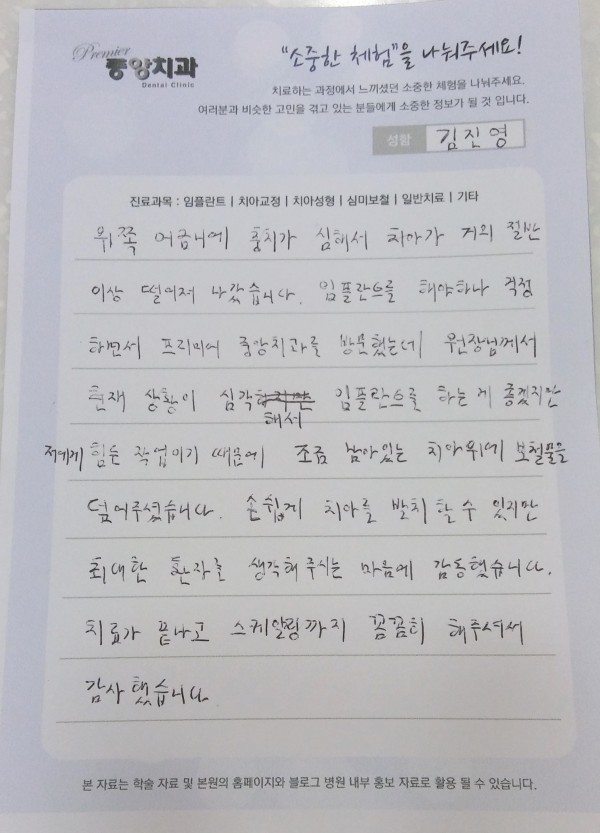 Premier
중앙치과
Dental Clinic
"소중한 체험"을 나눠주세요!
치료하는 과정에서 느끼셨던 소중한 체험을 나눠주세요.
여러분과 비슷한 고민을 겪고 있는 분들에게 소중한 정보가 될 것 입니다.
성함 김진영
진료과목 : 임플란트 | 치아교정 | 치아성형 | 심미보철 | 일반치료 | 기타
위쪽 어금니에 충치가 심해서 치아가 거의 절반
이상 떨어져 나갔습니다. 임플란트를 해야하나 걱정
하면서 프리미어 중앙치과를 방문했는데 원장님께서
현재 상황이 심각해서 임플란트를 하는 게 좋겠지만
저에게 힘든 작업이기 때문에 조금 남아있는 치아위에 보철물을
덮어주셨습니다. 손쉽게 치아를 발치 할 수 있지만
최대한 환자로 생각해 주시는 마음에 감동했습니다.
치료가 끝나고 스케일링까지 꼼꼼히 해주셔서
감사했습니다
본 자료는 학술 자료 및 본원의 홈페이지와 블로그 병원 내부 홍보 자료로 활용 될 수 있습니다.